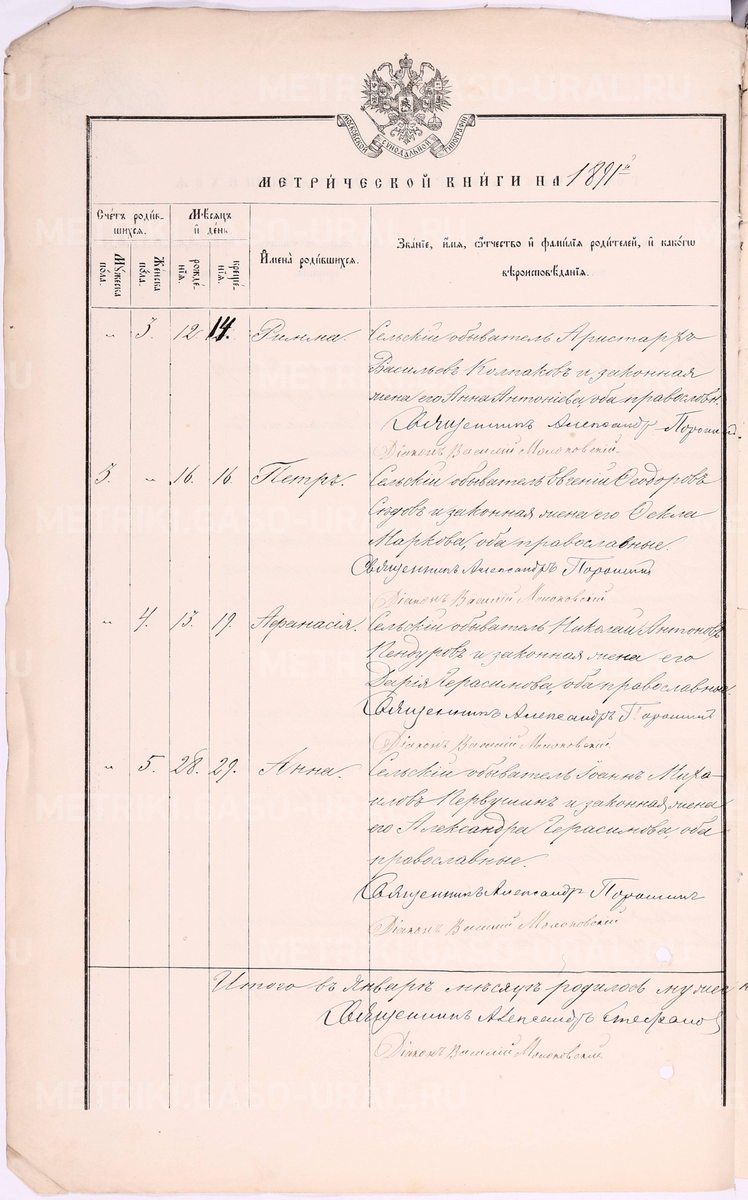 МОСКОВСКОЙ СѴНОДАЛЬНОЙ ТИПОГРАФІИ
МЕТРИ́ЧЕСКОЙ КНИ́ГИ НА 1891й
Сче́тъ роди́в-
шихся.
Мѣсяцъ
и҆ де́нь
Мꙋ́жеска
по́ла.
Же́нска
по́ла.
рожде́-
нїѧ.
креще́-
нїѧ.
И҆мена̀ роди́вшихся.
Зва́нїе, и҆́мѧ, ѻ҆́тчество и҆ фами́лїѧ роди́телей, и҆ како́гѡ
вѣроисповѣ́данїѧ.
" 3. 12. 14. Римма. Сельскій обыватель Аристархъ
Васильевъ Колпаковъ и законная
жена его Анна Антоніева, оба православн.
Священникъ Александръ Порошин
Діаконъ Василій Молоковскій.
3. " 16. 16. Петръ. Сельскій обыватель Евгеній Ѳеодоровъ
Сѣдовъ и законная жена его Ѳекла
Маркова, оба православные.
Священникъ Александръ Порошинъ
Діаконъ Василій Молоковскій
" 4. 13. 19. Аѳанасія. Сельскій обыватель Николай Антоновъ
Кендуровъ и законная жена его
Дарія Герасимова, оба православные.
Священникъ Александръ Порошинъ
Діаконъ Василій Молоковскій
" 5. 28. 29. Анна. Сельскій обыватель Іоаннъ Миха-
иловъ Первушинъ и законная жена
его Александра Герасимова, оба
православные.
Священникъ Александръ Порошинъ
Діаконъ Василій Молоковскій
Итого въ Январѣ мѣсяцѣ родилось мужеск
Священникъ Александръ Стефанов
Діаконъ Василій Молоковскій
METRIKI.GASO-URAL.RU